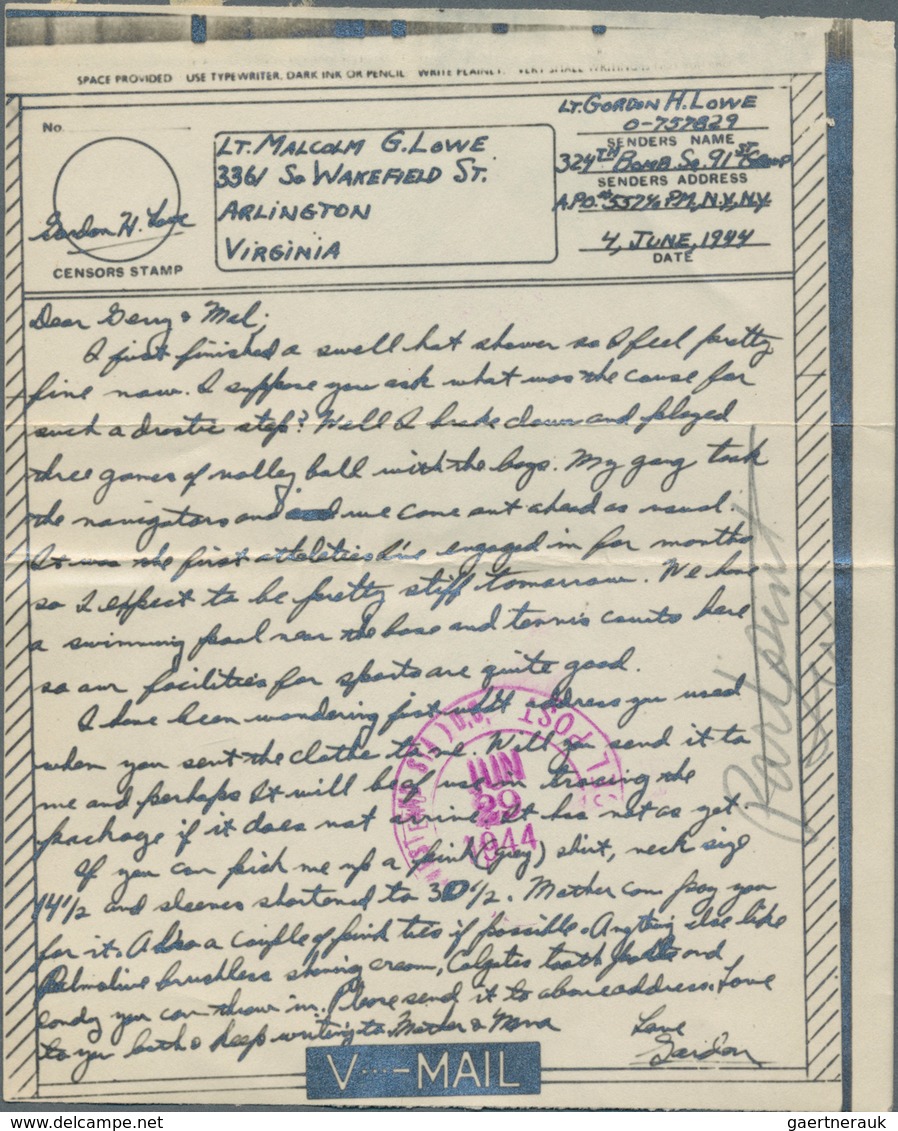 SPACE PROVIDED USE TYPEWRITER, DARK INK OR PENCIL WRITE PLAINLY. VERY SMALL WRITING
No.
LT. MALCOLM G. LOWE
3361 SO WAKEFIELD ST.
ARLINGTON
VIRGINIA
Gordon H. Lowe
CENSORS STAMP
LT. GORDON H. LOWE
O-757829
SENDERS NAME
324TH BOMB SQ, 91ST GROUP
SENDERS ADDRESS
A.P.O. #557 % PM, N.Y., N.Y.
4, JUNE, 1944
DATE
Dear Gerry & Mal;
I just finished a swell hot shower so I feel pretty
fine now. I suppose you ask what was the cause for
such a drastic step? Well I broke down and played
three games of volley ball with the boys. My gang took
the navigators and we come out ahead as usual.
It was the first atheletics I've engaged in for months
so I expect to be pretty stiff tomorrow. We have
a swimming pool near the base and tennis courts here
so our facilities for sports are quite good.
I have been wondering just what address you used
when you sent the clothe to me. Will you send it to
me and perhaps it will be of use in tracing the
package if it does not arrive. It has not as yet.
If you can pick me up a pink (grey) shirt, neck size
14 1/2 and sleeves shortened to 30 1/2. Mother can pay you
for it. Also a couple of pink ties if possible. Anything else like
Palmolive brushless shaving cream, Colgates tooth and
candy you can throw in. Please send it to above address. Love
to you both & keep writing to Mother &
Love
Gordon
U.S. POST
JUN
29
1944
V···-MAIL
www.delcampe.net
gaertnerauk